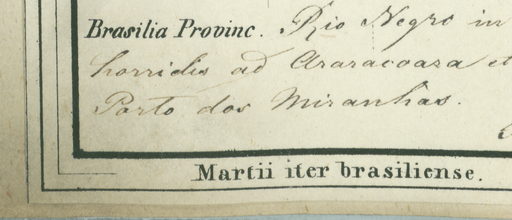 Brasilia Provinc. Rio Negro in
horridis ad Araracoara et
Porto dos Miranhas.
Martii iter brasiliense.